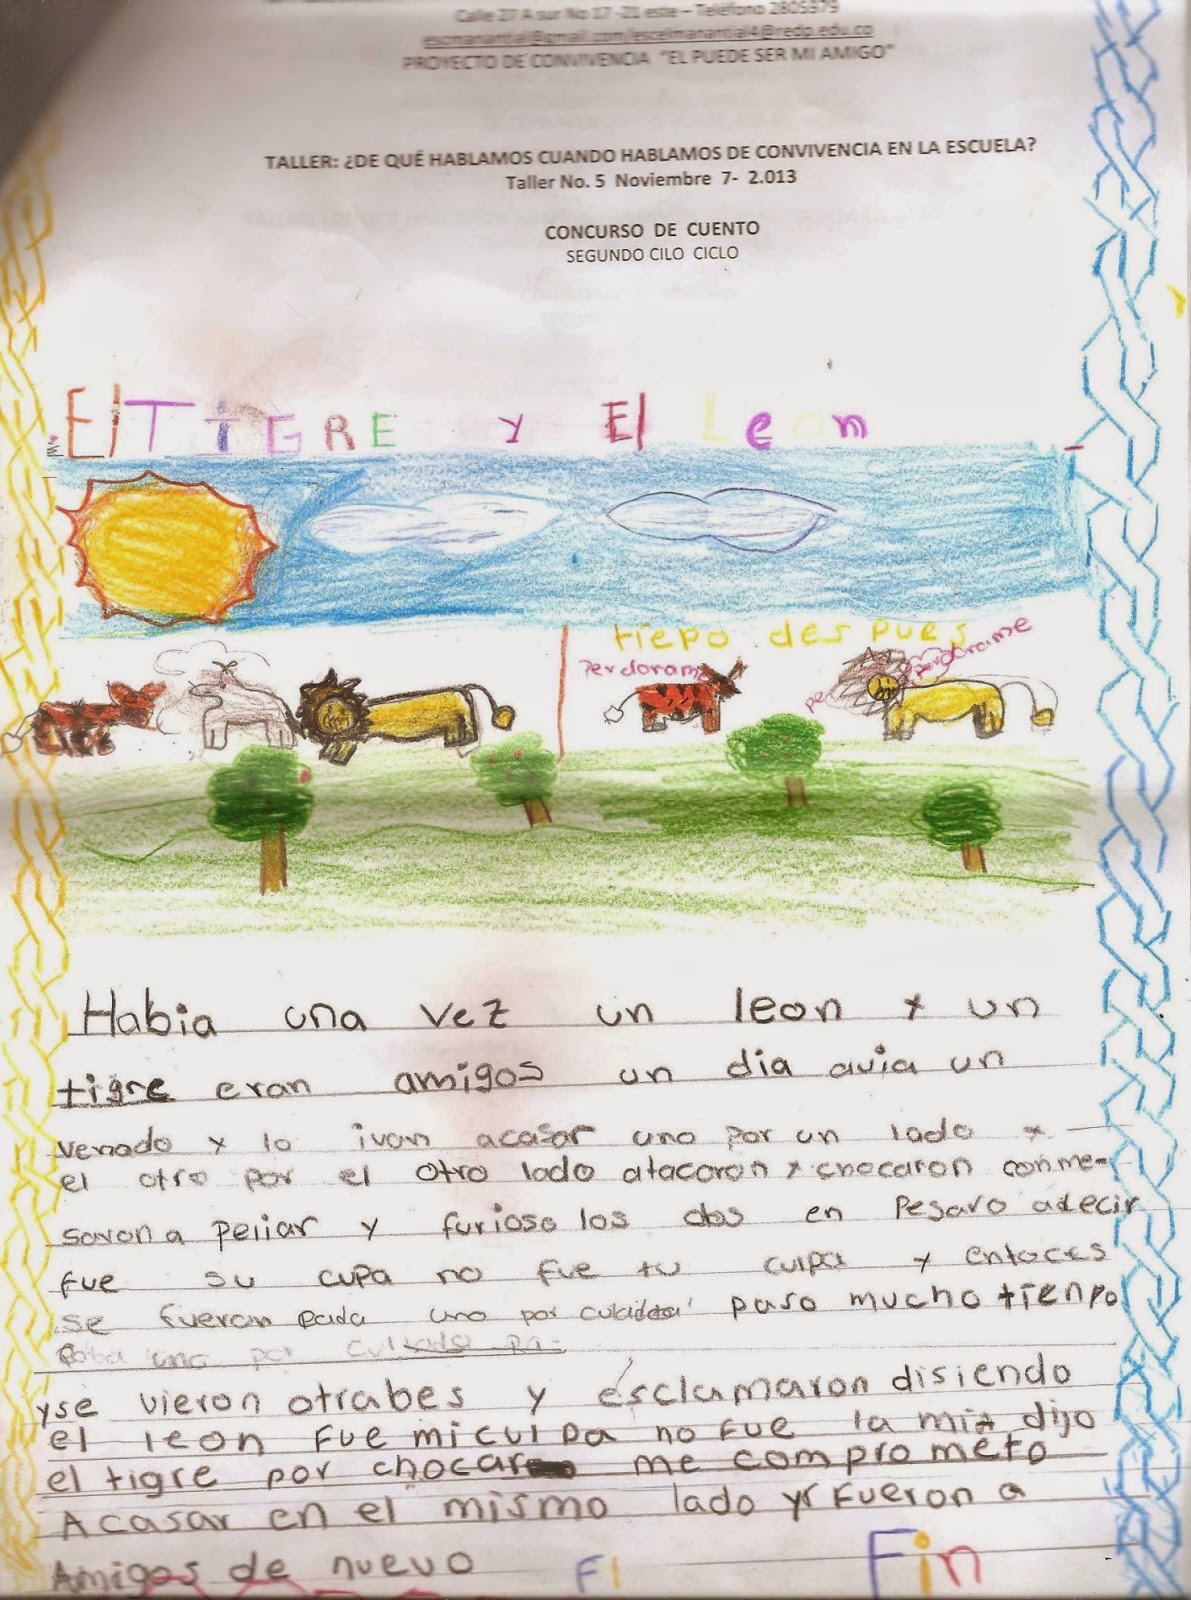 Calle 27 A sur No 17 -21 este – Teléfono 2805979
escmanantial@gmail.com/escelmanantial4@redp.edu.co
PROYECTO DE CONVIVENCIA "EL PUEDE SER MI AMIGO"
TALLER: ¿DE QUÉ HABLAMOS CUANDO HABLAMOS DE CONVIVENCIA EN LA ESCUELA?
Taller No. 5 Noviembre 7- 2.013
CONCURSO DE CUENTO
SEGUNDO CILO CICLO
El TiGRE y El Leon
tiepo despues
Perdorame perdorame
Habia una vez un leon y un
tigre eran amigos un dia avia un
venado y lo ivan acasar uno por un lado y
el otro por el otro lado atacaron y chocaron conme-
saron a peliar y furioso los dos en pesaro adecir
fue su cupa no fue tu culpa y entoces
se fueron uno por paso mucho tienpo
uno por
yse vieron otrabes y esclamaron disiendo
el leon fue mi culpa no fue la mia dijo
el tigre por chocar me comprometo
Acasar en el mismo lado y fueron a
Amigos de nuevo Fi Fin